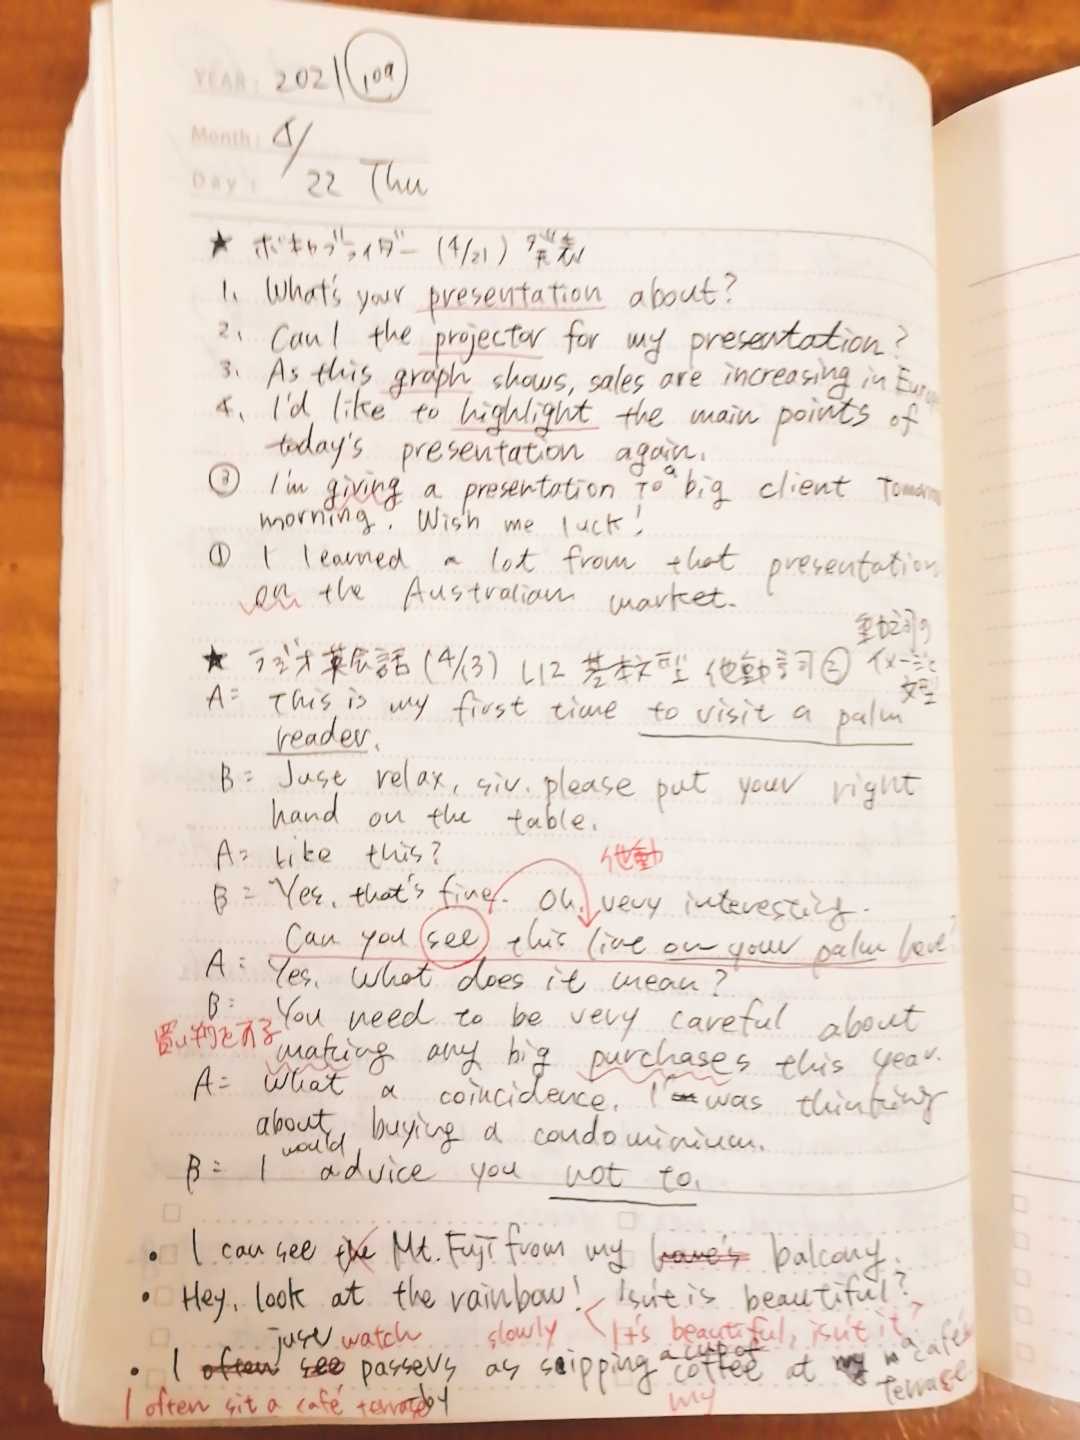 YEAR: 2021 109
Month: 4/
Day: 22 Thu
★ ボキャブライダー (4/21) 発表
1. What's your presentation about?
2. Can I the projector for my presentation?
3. As this graph shows, sales are increasing in Europe
4. I'd like to highlight the main points of
today's presentation again.
③ I'm giving a presentation to a big client tomorrow
morning. Wish me luck!
① I learned a lot from that presentation
on the Australian market.
動詞の
★ ラジオ英会話 (4/13) L12 基本文型 他動詞②
文型
A= This is my first time to visit a palm
reader.
B= Just relax, sir. please put your right
hand on the table.
A= Like this?
他動
B= Yes, that's fine. Oh, very interesting.
Can you see this line on your palm here?
A= Yes. What does it mean?
B= You need to be very careful about
買い物をする
making any big purchases this year.
A= What a coincidence. I was thinking
about buying a condominium.
would
B= I advice you not to.
• I can see the Mt. Fuji from my balcony.
• Hey, look at the rainbow! Isn't is beautiful?
It's beautiful, isn't it?
just watch slowly a cup of a café's
• I often see passers as sipping coffee at my terrase
I often sit a café terrase by my